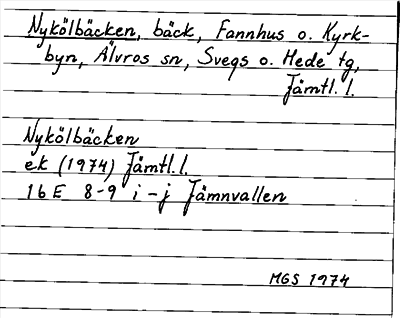 Nykölbäcken, bäck, Fannhus o. Kyrk-
byn, Älvros sn, Svegs o. Hede tg,
Jämtl. l.
Nykölbäcken
ek (1974) Jämtl. l.
16E 8-9 i-j Jämnvallen
MGS 1974